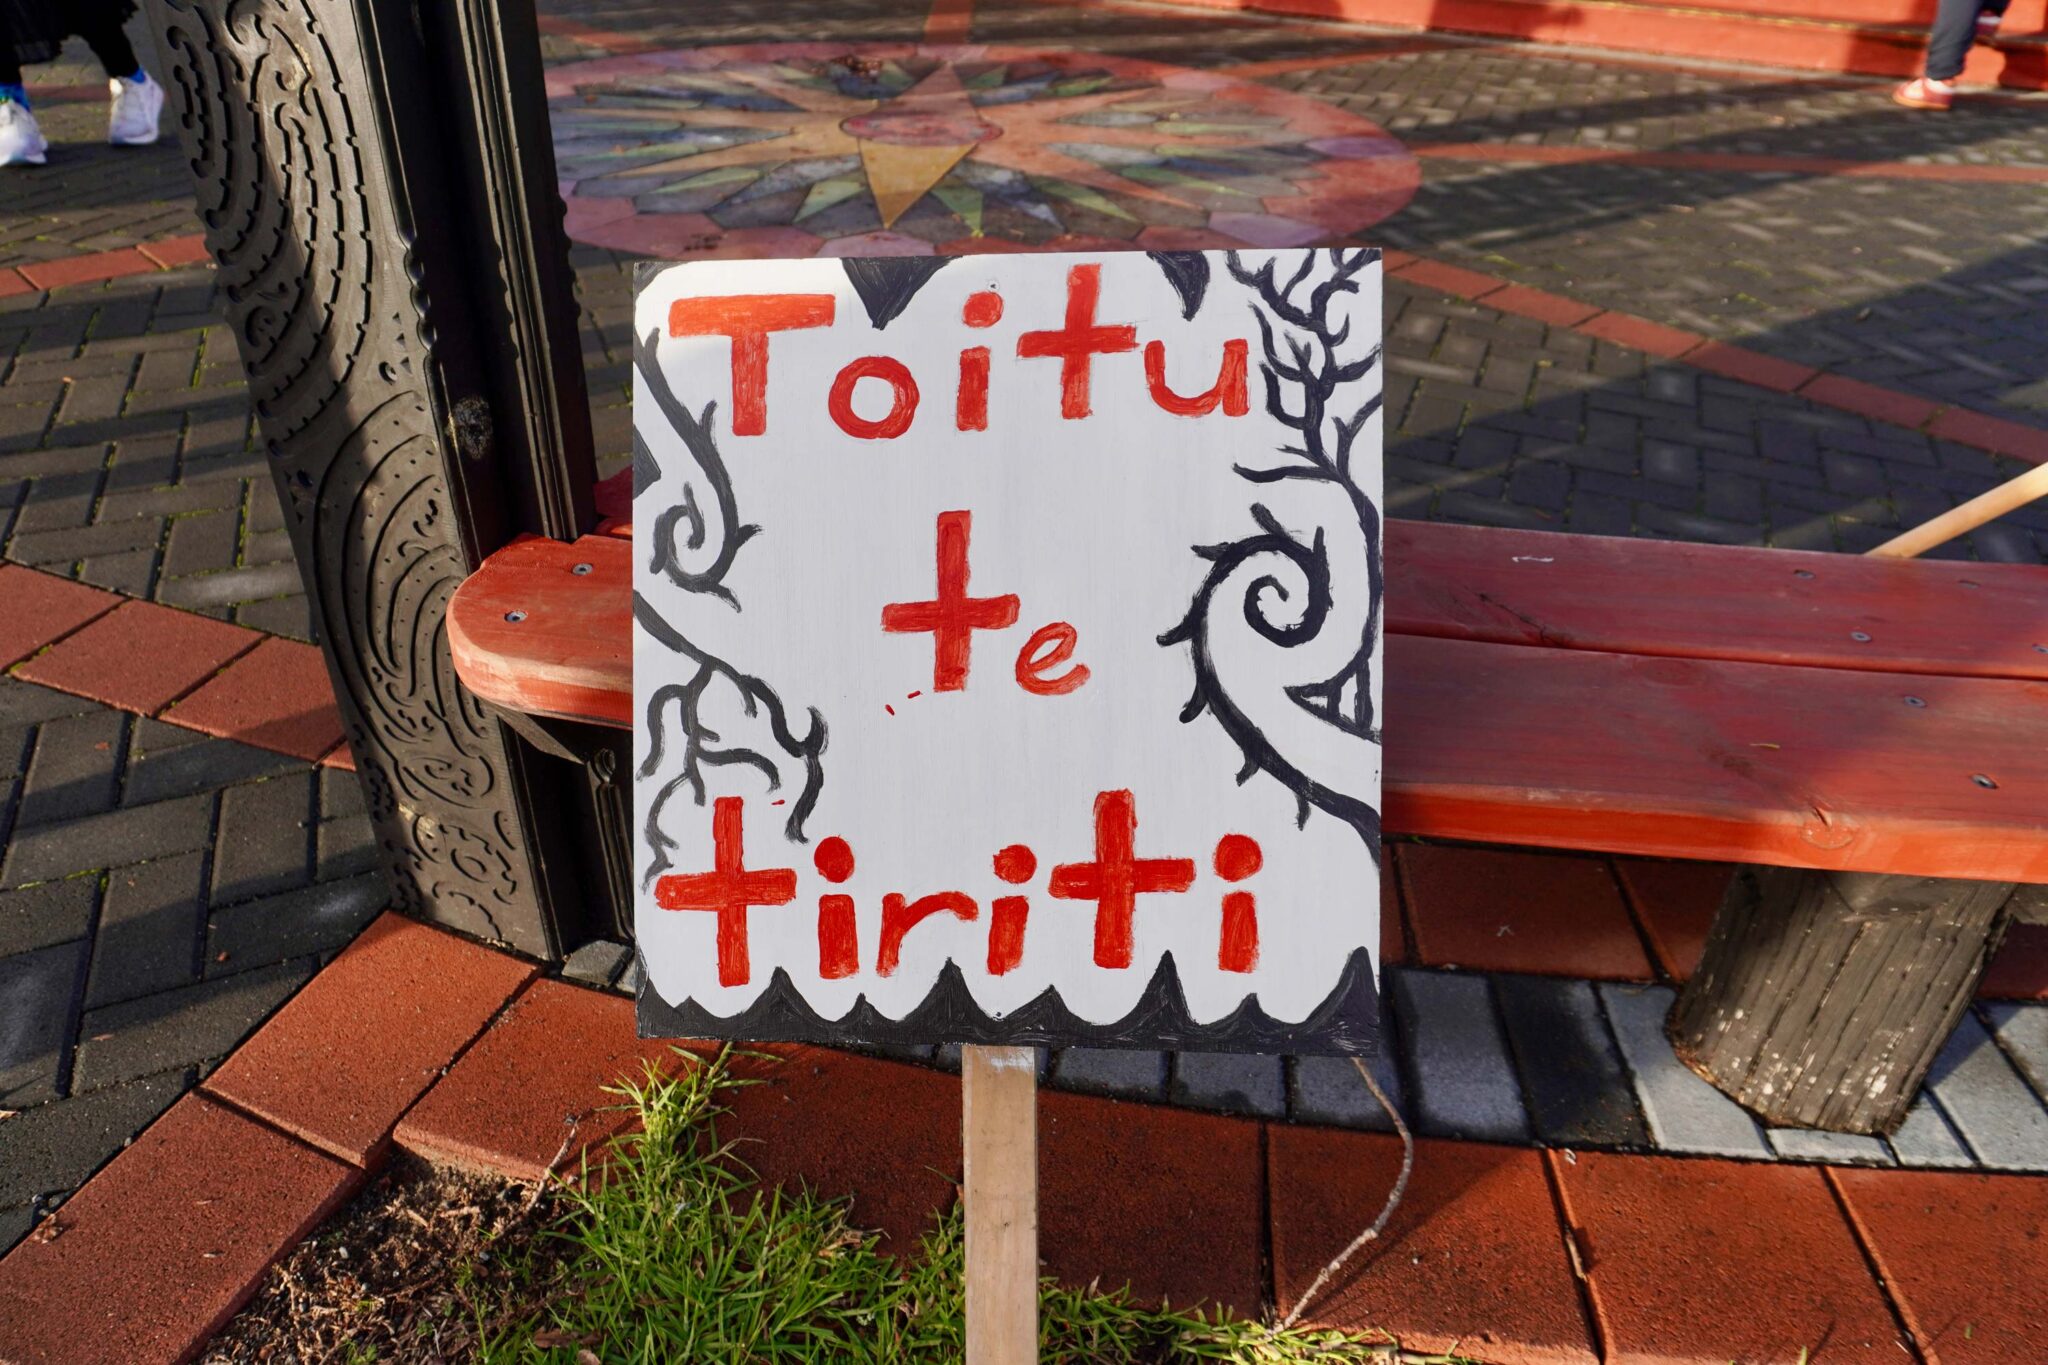 Toitu
te
tiriti